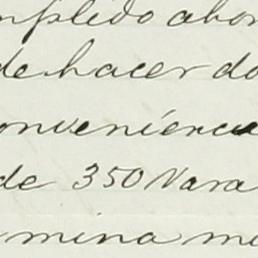 mpledo abon
de hacer do
onveniencia
de 350 Vara
mina me